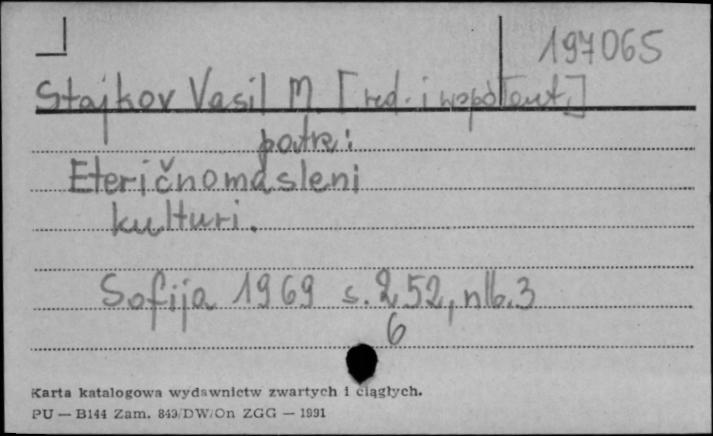 197065
Stajkov Vasil M. [red. i współaut.]
patrz:
Eteričnomasleni
kulturi.
Sofija 1969 s. 252, nlb. 3
6
Karta katalogowa wydawnictw zwartych i ciągłych.
PU — B144 Zam. 843/DW/On ZGG — 1991